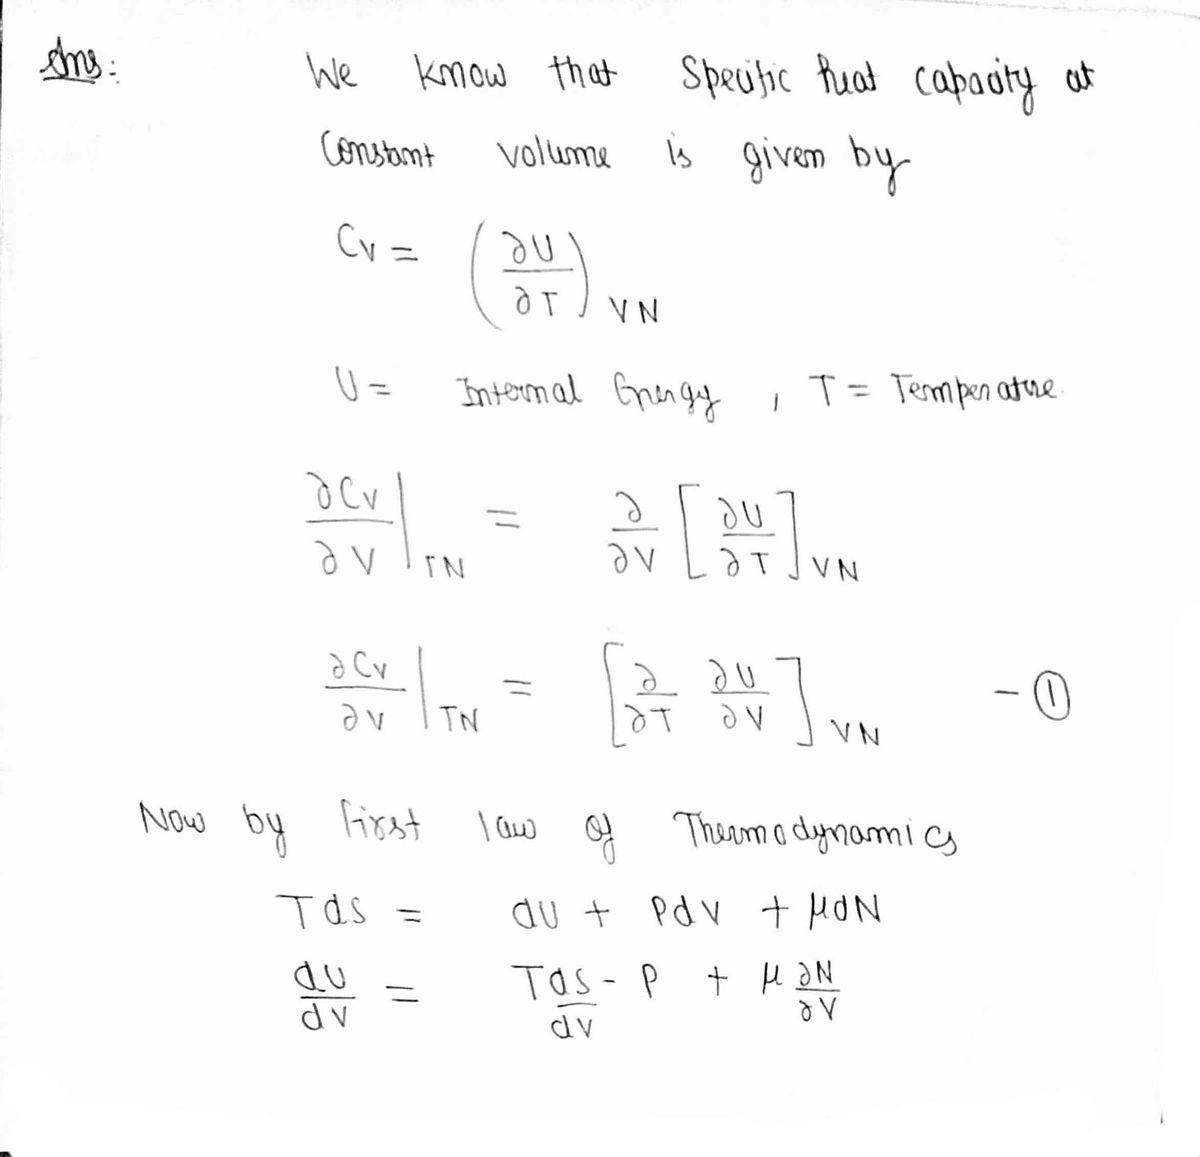 Ans:
We know that Specific heat capacity at
Constant volume is given by
Cv = (∂U/∂T) VN
U = Internal Energy , T = Temperature.
∂Cv/∂V | TN = ∂/∂V [∂U/∂T] VN
∂Cv/∂V | TN = [∂/∂T ∂U/∂V] VN - ①
Now by first law of Thermodynamics
Tds = dU + Pdv + μdN
dU/dv = Tds/dv - P + μ ∂N/∂V